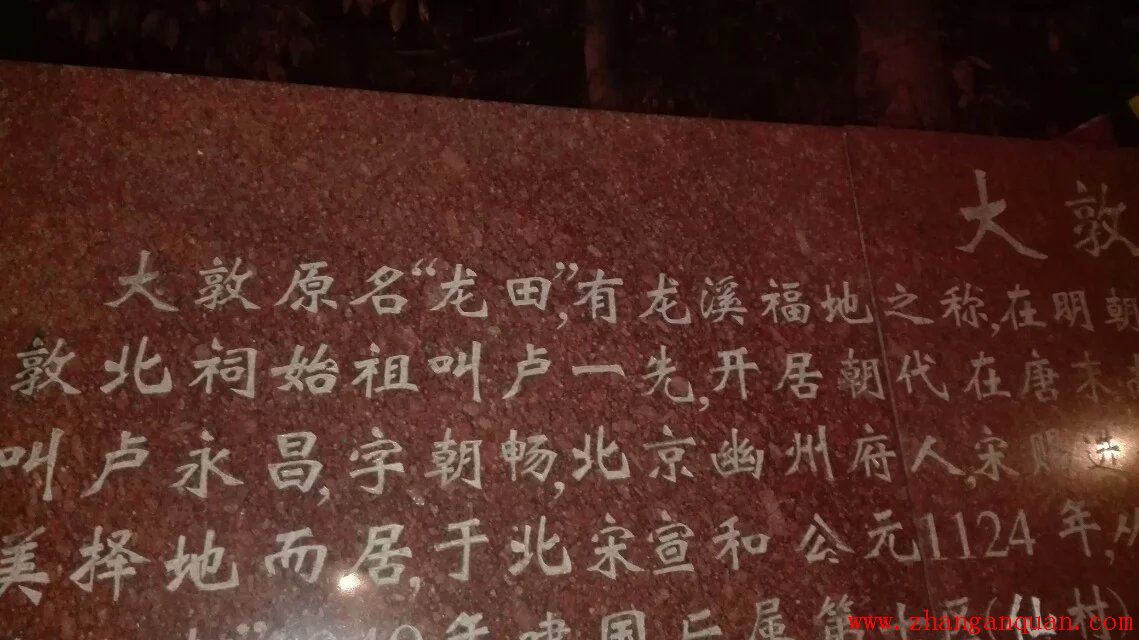 大敦
大敦原名“龙田”,有龙溪福地之称,在明朝
敦北祠始祖叫卢一先,开居朝代在唐末
叫卢永昌,字朝畅,北京幽州府人,宋赐进
美择地而居,于北宋宣和公元1124年,从
年建国后属第七区(仙村)
www.zhanganquan.com